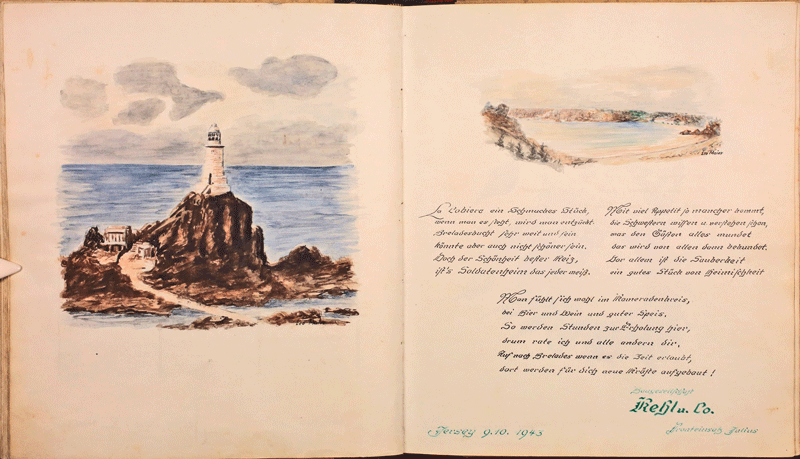 La Cobiere ein Schmuckes Stück,
wenn man es seht, wird man entzückt.
Breladesbucht sehr weit und fein
könnte aber auch nicht schöner sein.
Doch der Schönheit bester Reiz,
ist's Soldatenheim das jeder weiß.
Mit viel Appetit so mancher kommt,
die Schwestern wissen u. verstehen schon,
was den Gästen alles mundet
das wird von allen dann bekundet.
Vor allem ist die Sauberkeit
ein gutes Stück von Heimischkeit
Man fühlt sich wohl im Kameradenkreis,
bei Bier und Wein und guter Speis.
So werden Stunden zur Erholung hier,
drum rate ich und alle andern dir,
Auf nach Brelades wenn es die Zeit erlaubt,
dort werden für dich neue Kräfte aufgebaut!
Kehl u. Co.
Jersey 9.10. 1943